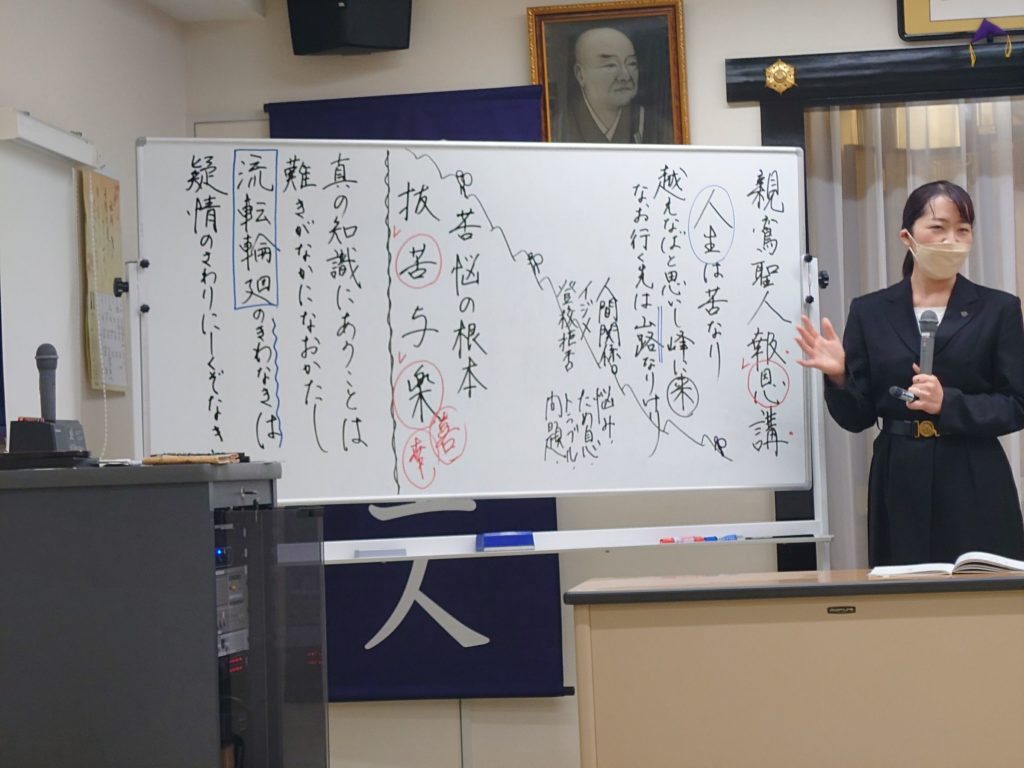 親鸞聖人報恩講
人生は苦なり
越えなばと思いし峰に来
なお行く先は山路なりけり
人間関係
イジメ
登校拒否
悩み
ため息
トラブル
問題
苦悩の根本
抜苦与楽
幸
真の知識にあうことは
難きがなかになおかたし
流転輪廻のきわなきは
疑情のさわりにしくぞなき
人